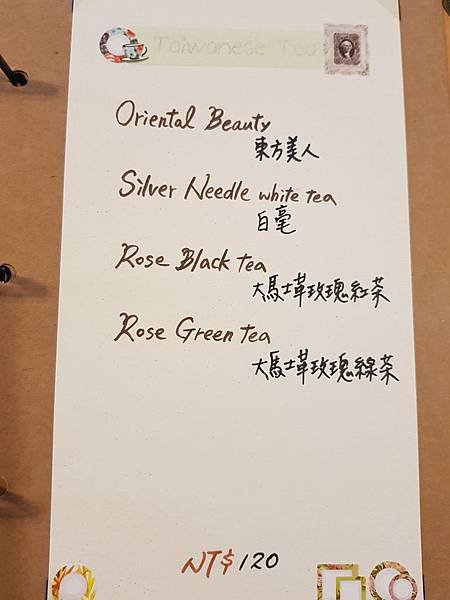 Taiwanese Tea
Oriental Beauty
東方美人
Silver Needle white tea
白毫
Rose Black tea
大馬士革玫瑰紅茶
Rose Green tea
大馬士革玫瑰綠茶
NT$120